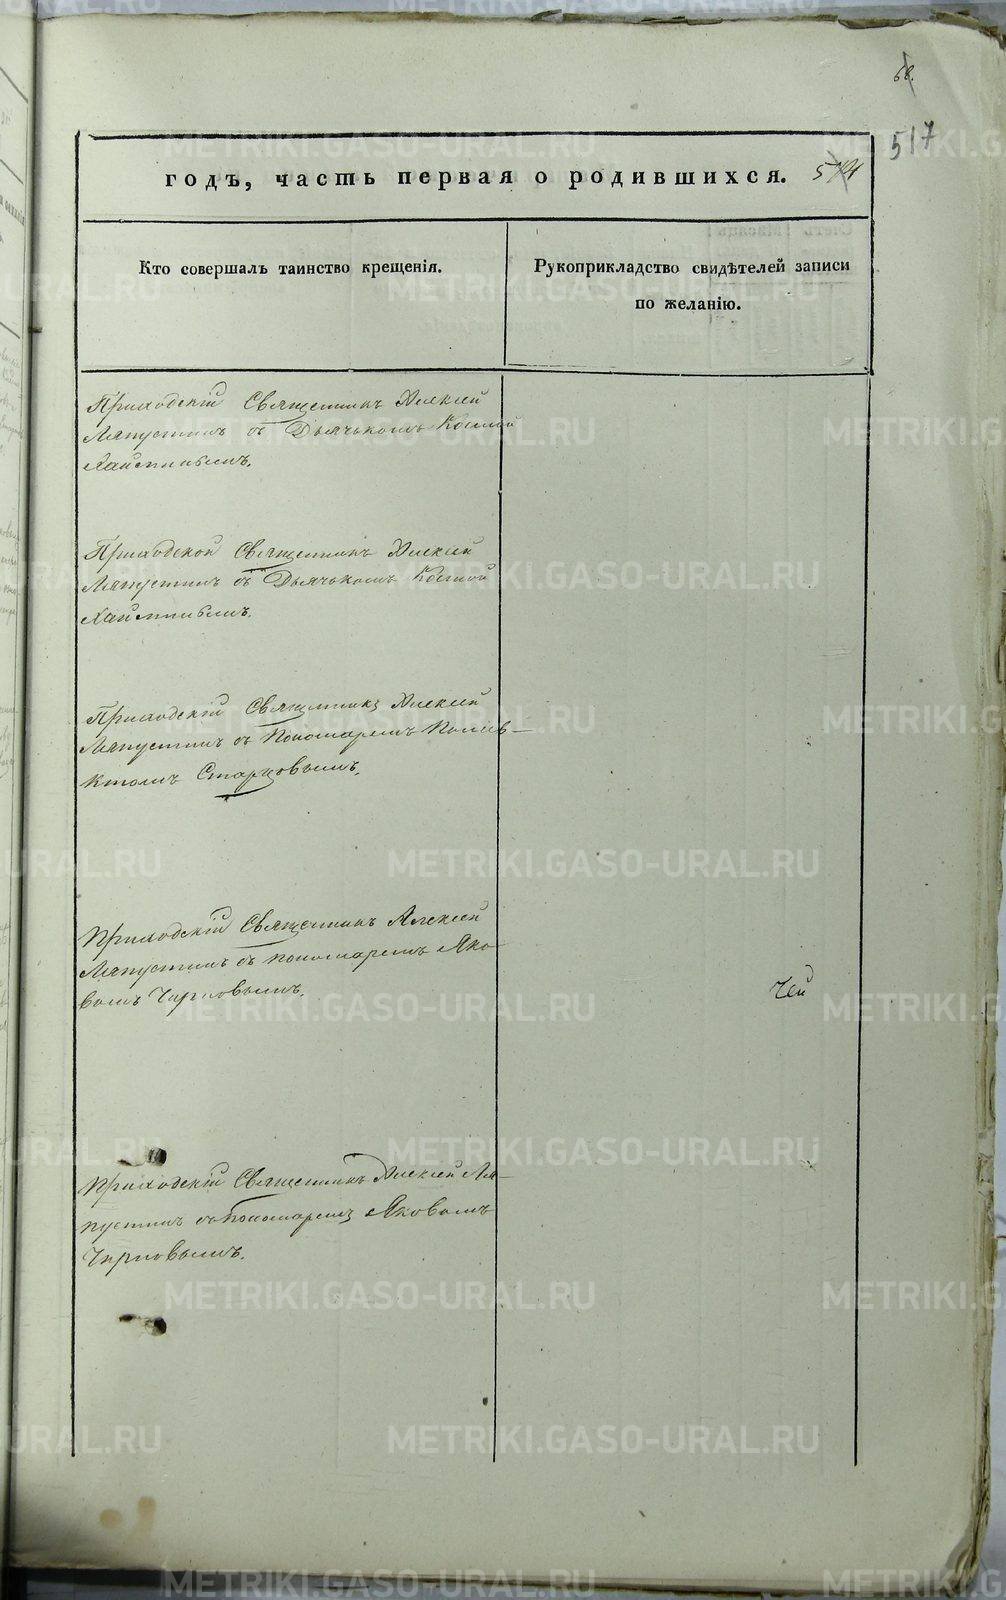 68.
517
годъ, часть первая о родившихся. 514
Кто совершалъ таинство крещенія.
Рукоприкладство свидѣтелей записи
по желанію.
Приходскій Священникъ Алексѣй
Ляпустинъ съ Дьячькомъ Космой
Приходской Священникъ Алексѣй
Ляпустинъ съ Дьячькомъ Космой
Приходскій Священникъ Алексѣй
Ляпустинъ съ Пономаремъ Полиев-
ктомъ Старцовымъ.
Приходскій Священникъ Алексѣй
Ляпустинъ съ пономаремъ Яко-
вомъ Черновымъ.
Чей
Приходскій Священникъ Алексѣй Ля-
пустинъ съ пономаремъ Яковомъ
Черновымъ.
METRIKI.GASO-URAL.RU